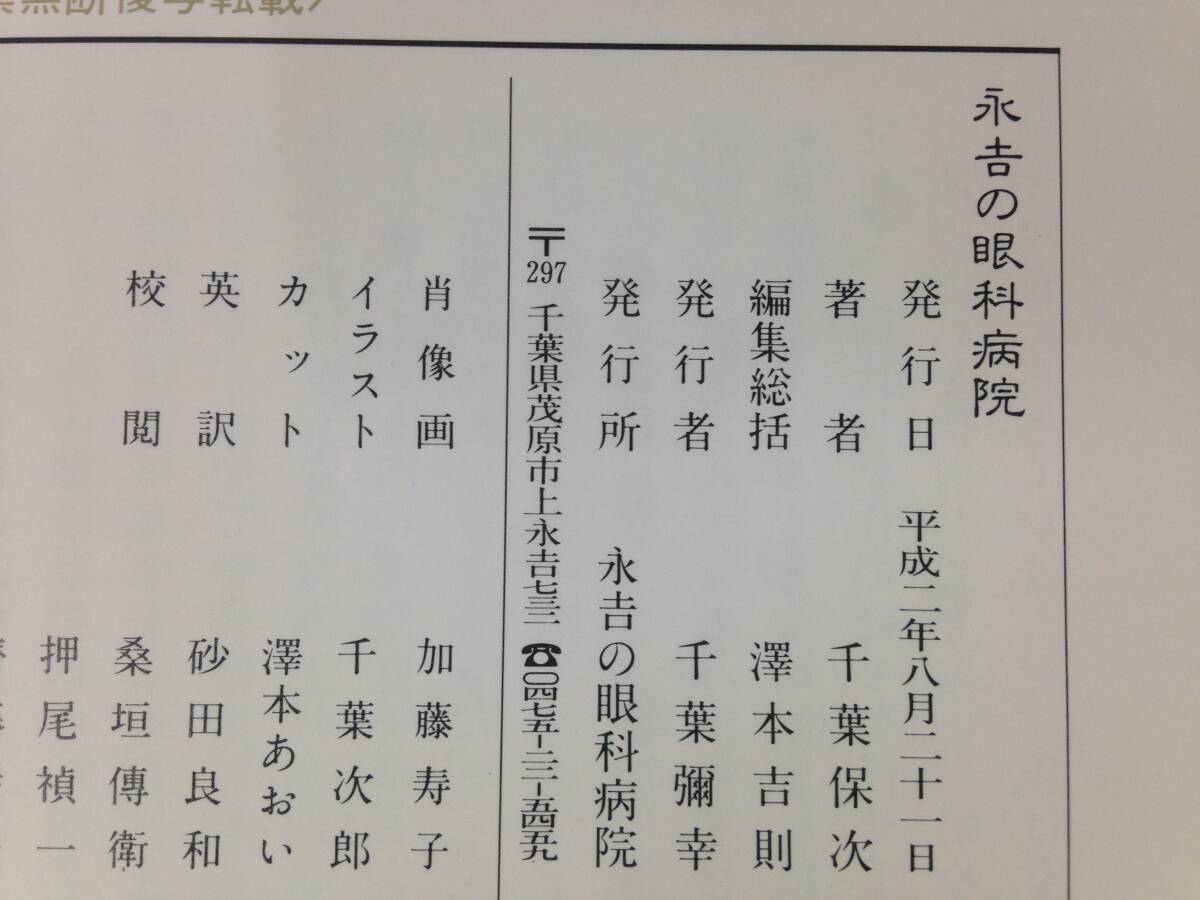 永𠮷の眼科病院
発行日 平成二年八月二十一日
著者 千葉保次
編集総括 澤本吉則
発行者 千葉彌幸
発行所 永𠮷の眼科病院
〒297 千葉県茂原市上永𠮷七三二 ☎〇四七五-二二-五四五九
肖像画 加藤寿子
イラスト 千葉次郎
カット 澤本あおい
英訳 砂田良和
校閲 桑垣傳衛
押尾禎一
無断複写転載〉